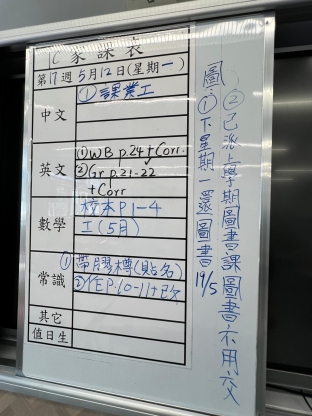 C 家課表
第17週 5月12日(星期一)
中文
①課業工
英文
①WB p.24 + Corr.
②Gr p.21-22
+ Corr
數學
校本P.1-4
工(5月)
常識
①帶膠樽(貼名)
②作P.10-11+改
其它
值日生
圖:①下星期一還圖書 19/5
②已派上學期圖書課圖書不用交